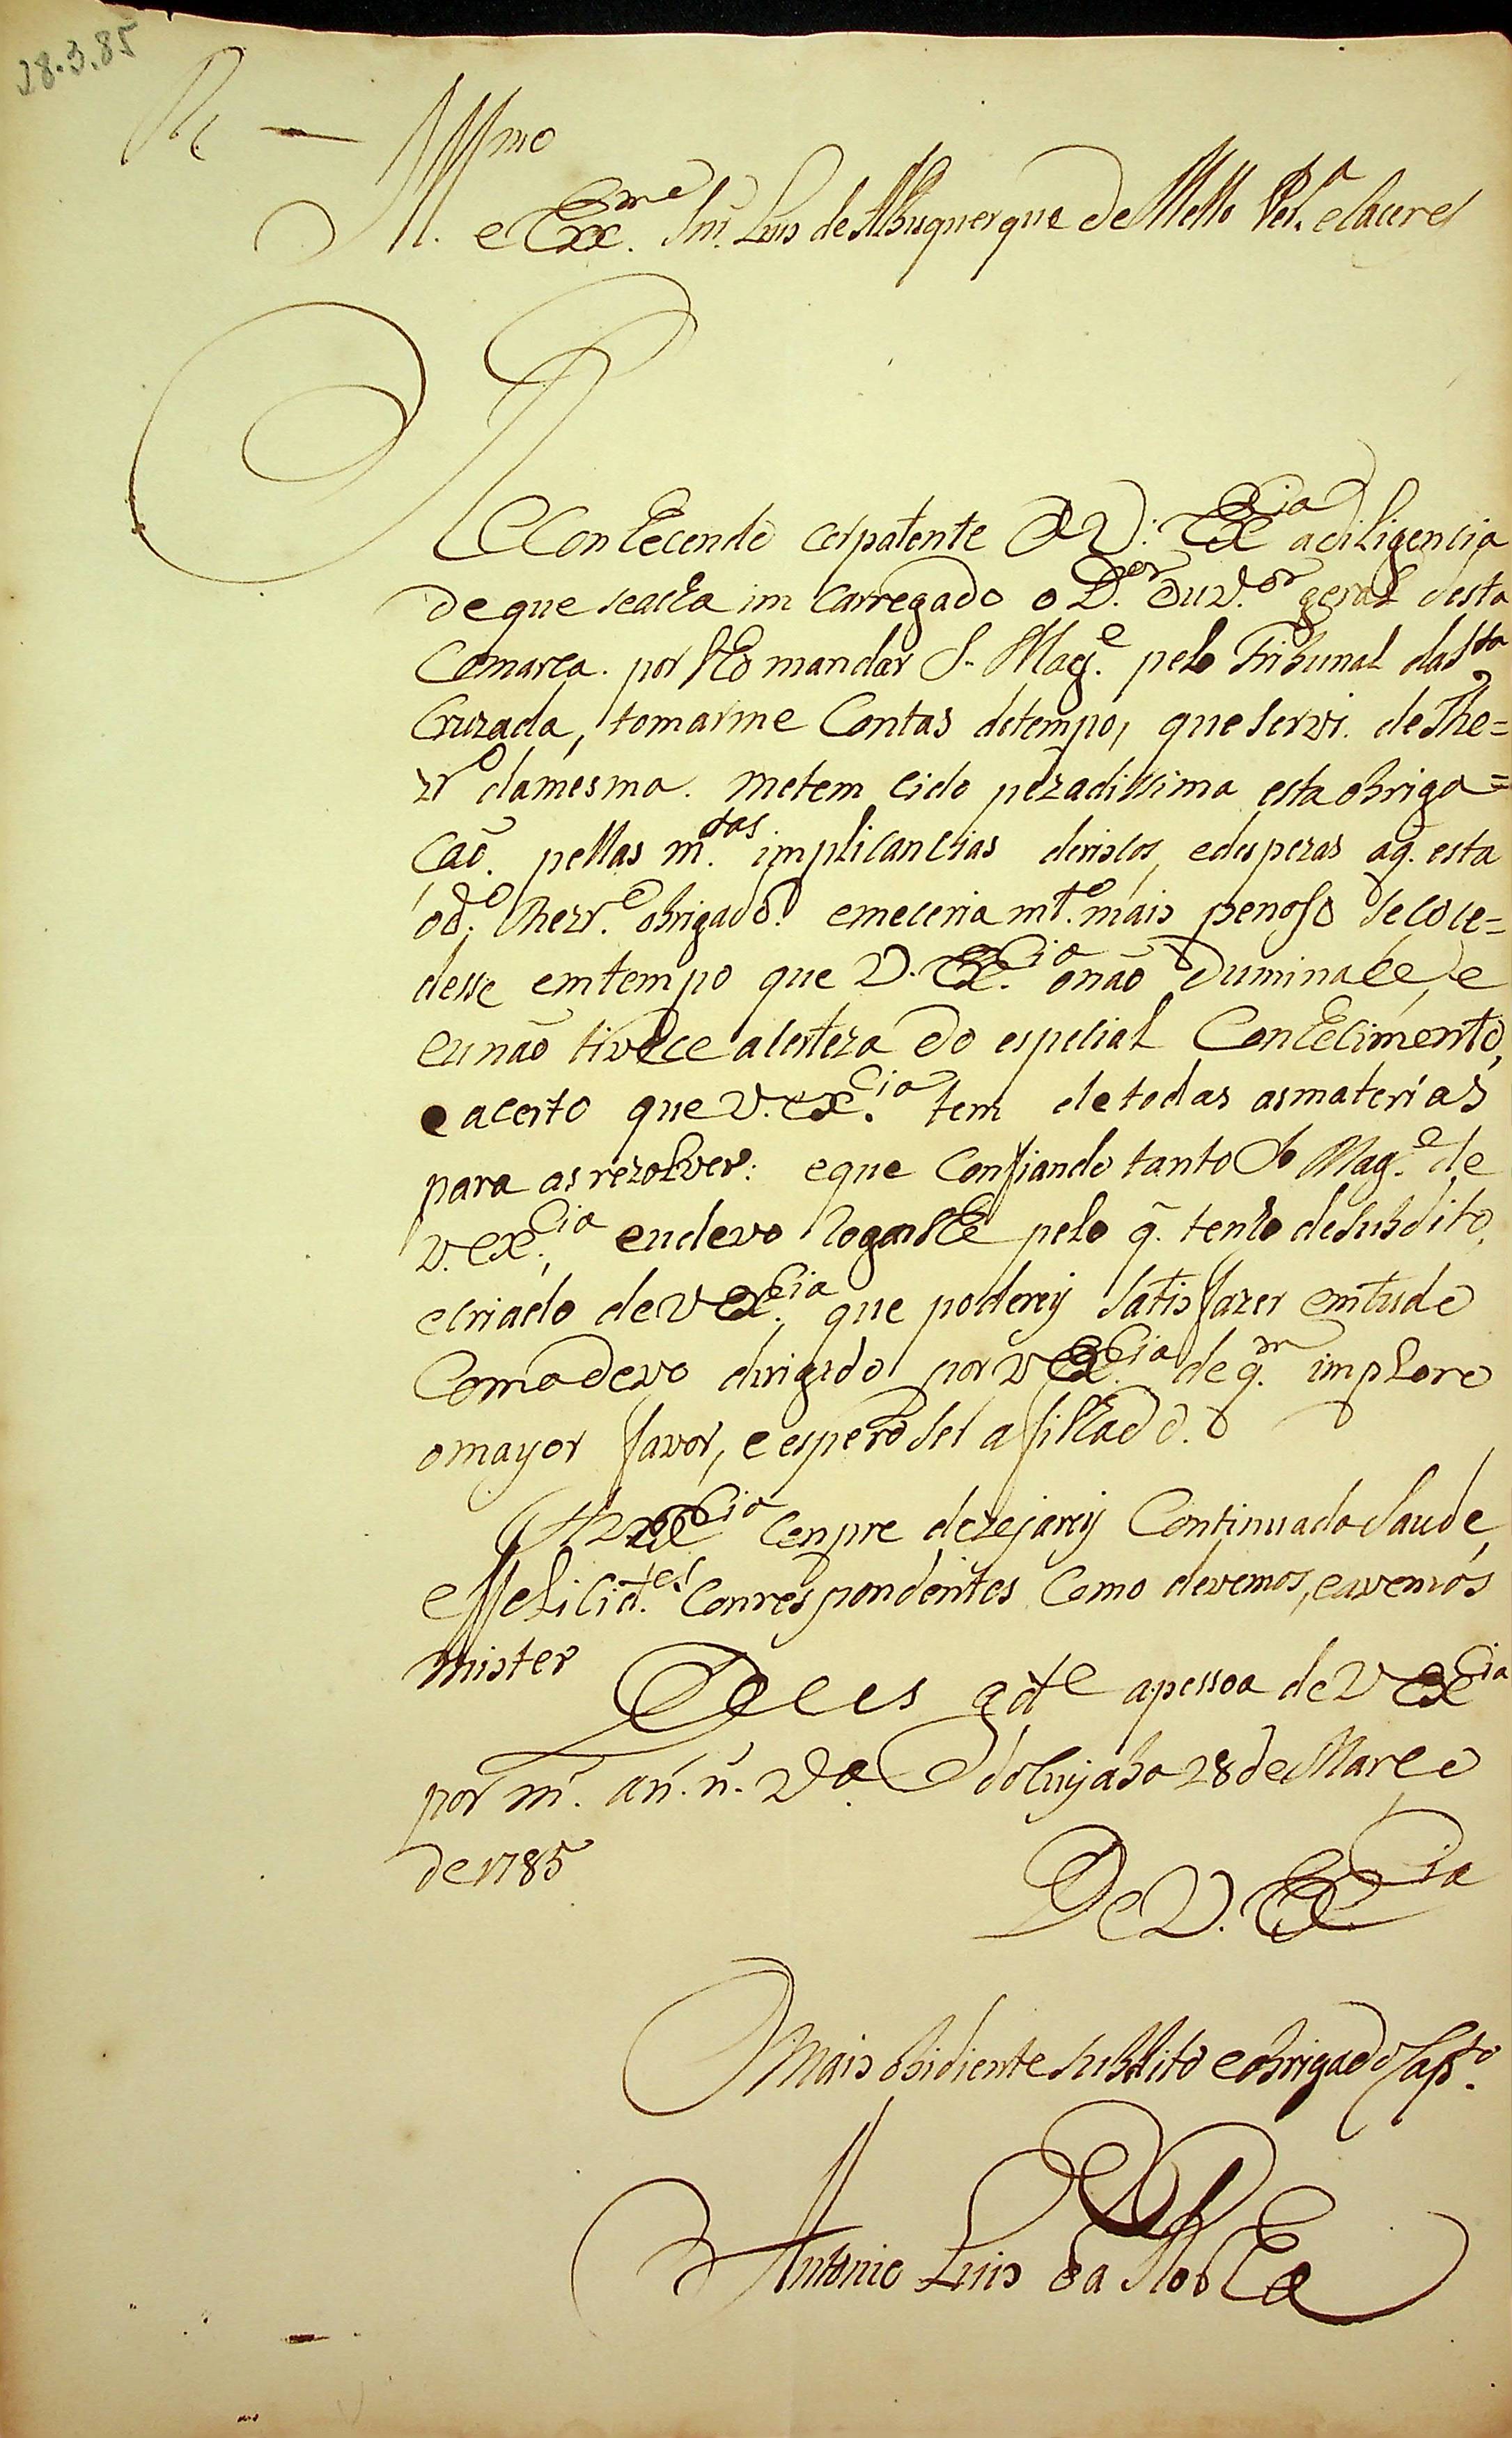 28.3.85
R. —
Ill.mo
e Ex.mo Snr. Luis de Albuquerque de Mello Per.a e Caceres
Reconhecendo ser patente a V. Ex.cia a diligencia
de que se acha im carregado o D.or Ouv.or geral desta
Comarca. por lho mandar S. Mag.e pelo Tribunal da S.ta
Cruzada, tomarme Contas do tempo, que servi. de The=
zr.o da mesma. me tem cido pezadissima esta obriga=
caõ. pellas m.tas implicancias de riscos, e despezas a q̃. esta
o d.o Thezr.o obrigado. e me ceria mt.o mais penoso se soce=
desse em tempo que V. Ex.cia o não duminace, e
eu não tivece a certeza do especial Conhecimento,
e acerto que V. Ex.cia tem de todas as materias
para as rezolver: e que Confiando tanto S. Mag.e de
V. Ex.cia eu devo rogar lhe pelo q̃. tenho de subdito,
e criado de V Ex.cia que poderey satisfazer em tudo
Como devo dirigido por V Ex.cia de q.m imploro
o mayor favor, e espero ser afilhado.
A V Ex.cia cenpre dezejarey Continuada Saude,
e ffelicid.es Conrespondentes Como devemos, e avemos
mister
Deos gd.e a pessoa de V Ex.cia
por m.s an.s V.a do Cuyaba 28 de Março
de 1785
De V. Ex.cia
Mais obidiente subdito e obrigado
Antonio Luis da Rocha